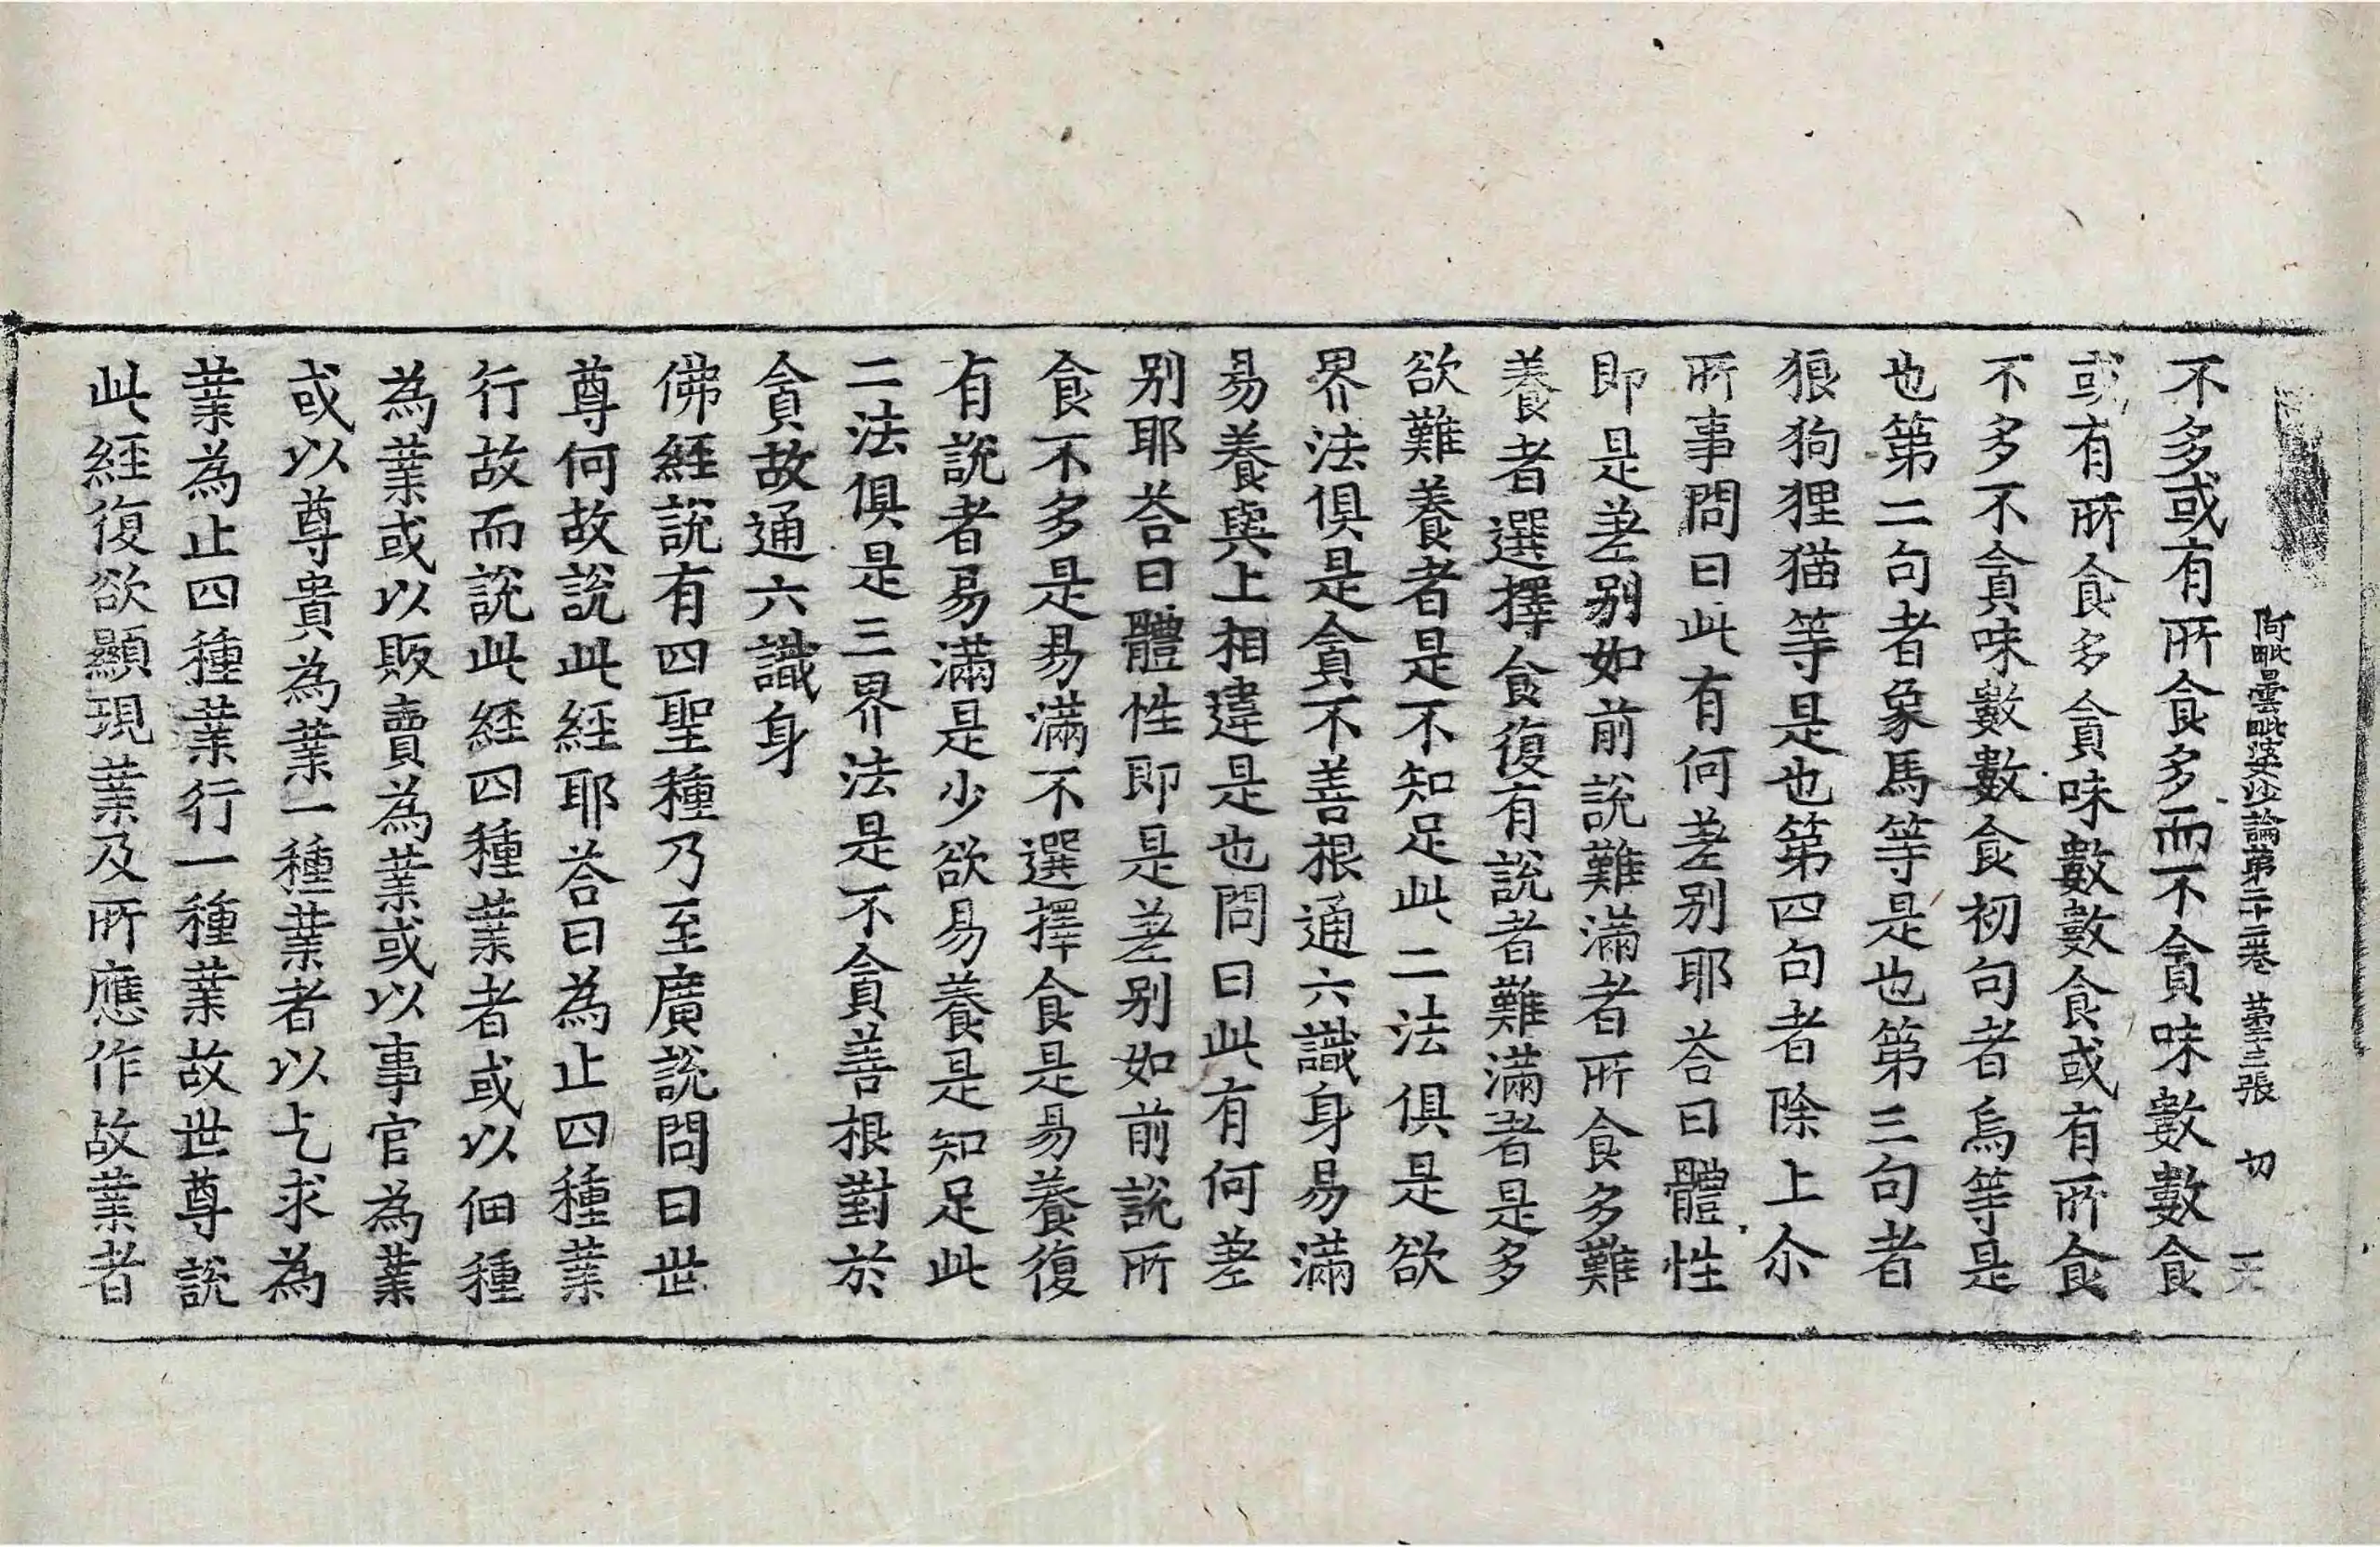 阿毗曇毗婆沙論第二十二卷 第十三張 切
不多或有所食多而不貪味數數食
或有所食多貪味數數食或有所食
不多不貪味數數食初句者烏等是
也第二句者象馬等是也第三句者
狼狗狸猫等是也第四句者除上尒
所事問曰此有何差别耶荅曰體性
即是差别如前說難滿者所食多難
養者選擇食復有說者難滿者是多
欲難養者是不知足此二法俱是欲
界法俱是貪不善根通六識身易滿
易養與上相違是也問曰此有何差
别耶荅曰體性即是差别如前說所
食不多是易滿不選擇食是易養復
有說者易滿是少欲易養是知足此
二法俱是三界法是不貪善根對於
貪故通六識身
佛經說有四聖種乃至廣說問曰世
尊何故說此經耶荅曰為止四種業
行故而說此經四種業者或以佃種
為業或以販賣為業或以事官為業
或以尊貴為業一種業者以乞求為
業為止四種業行一種業故世尊說
此經復欲顯現業及所應作故業者